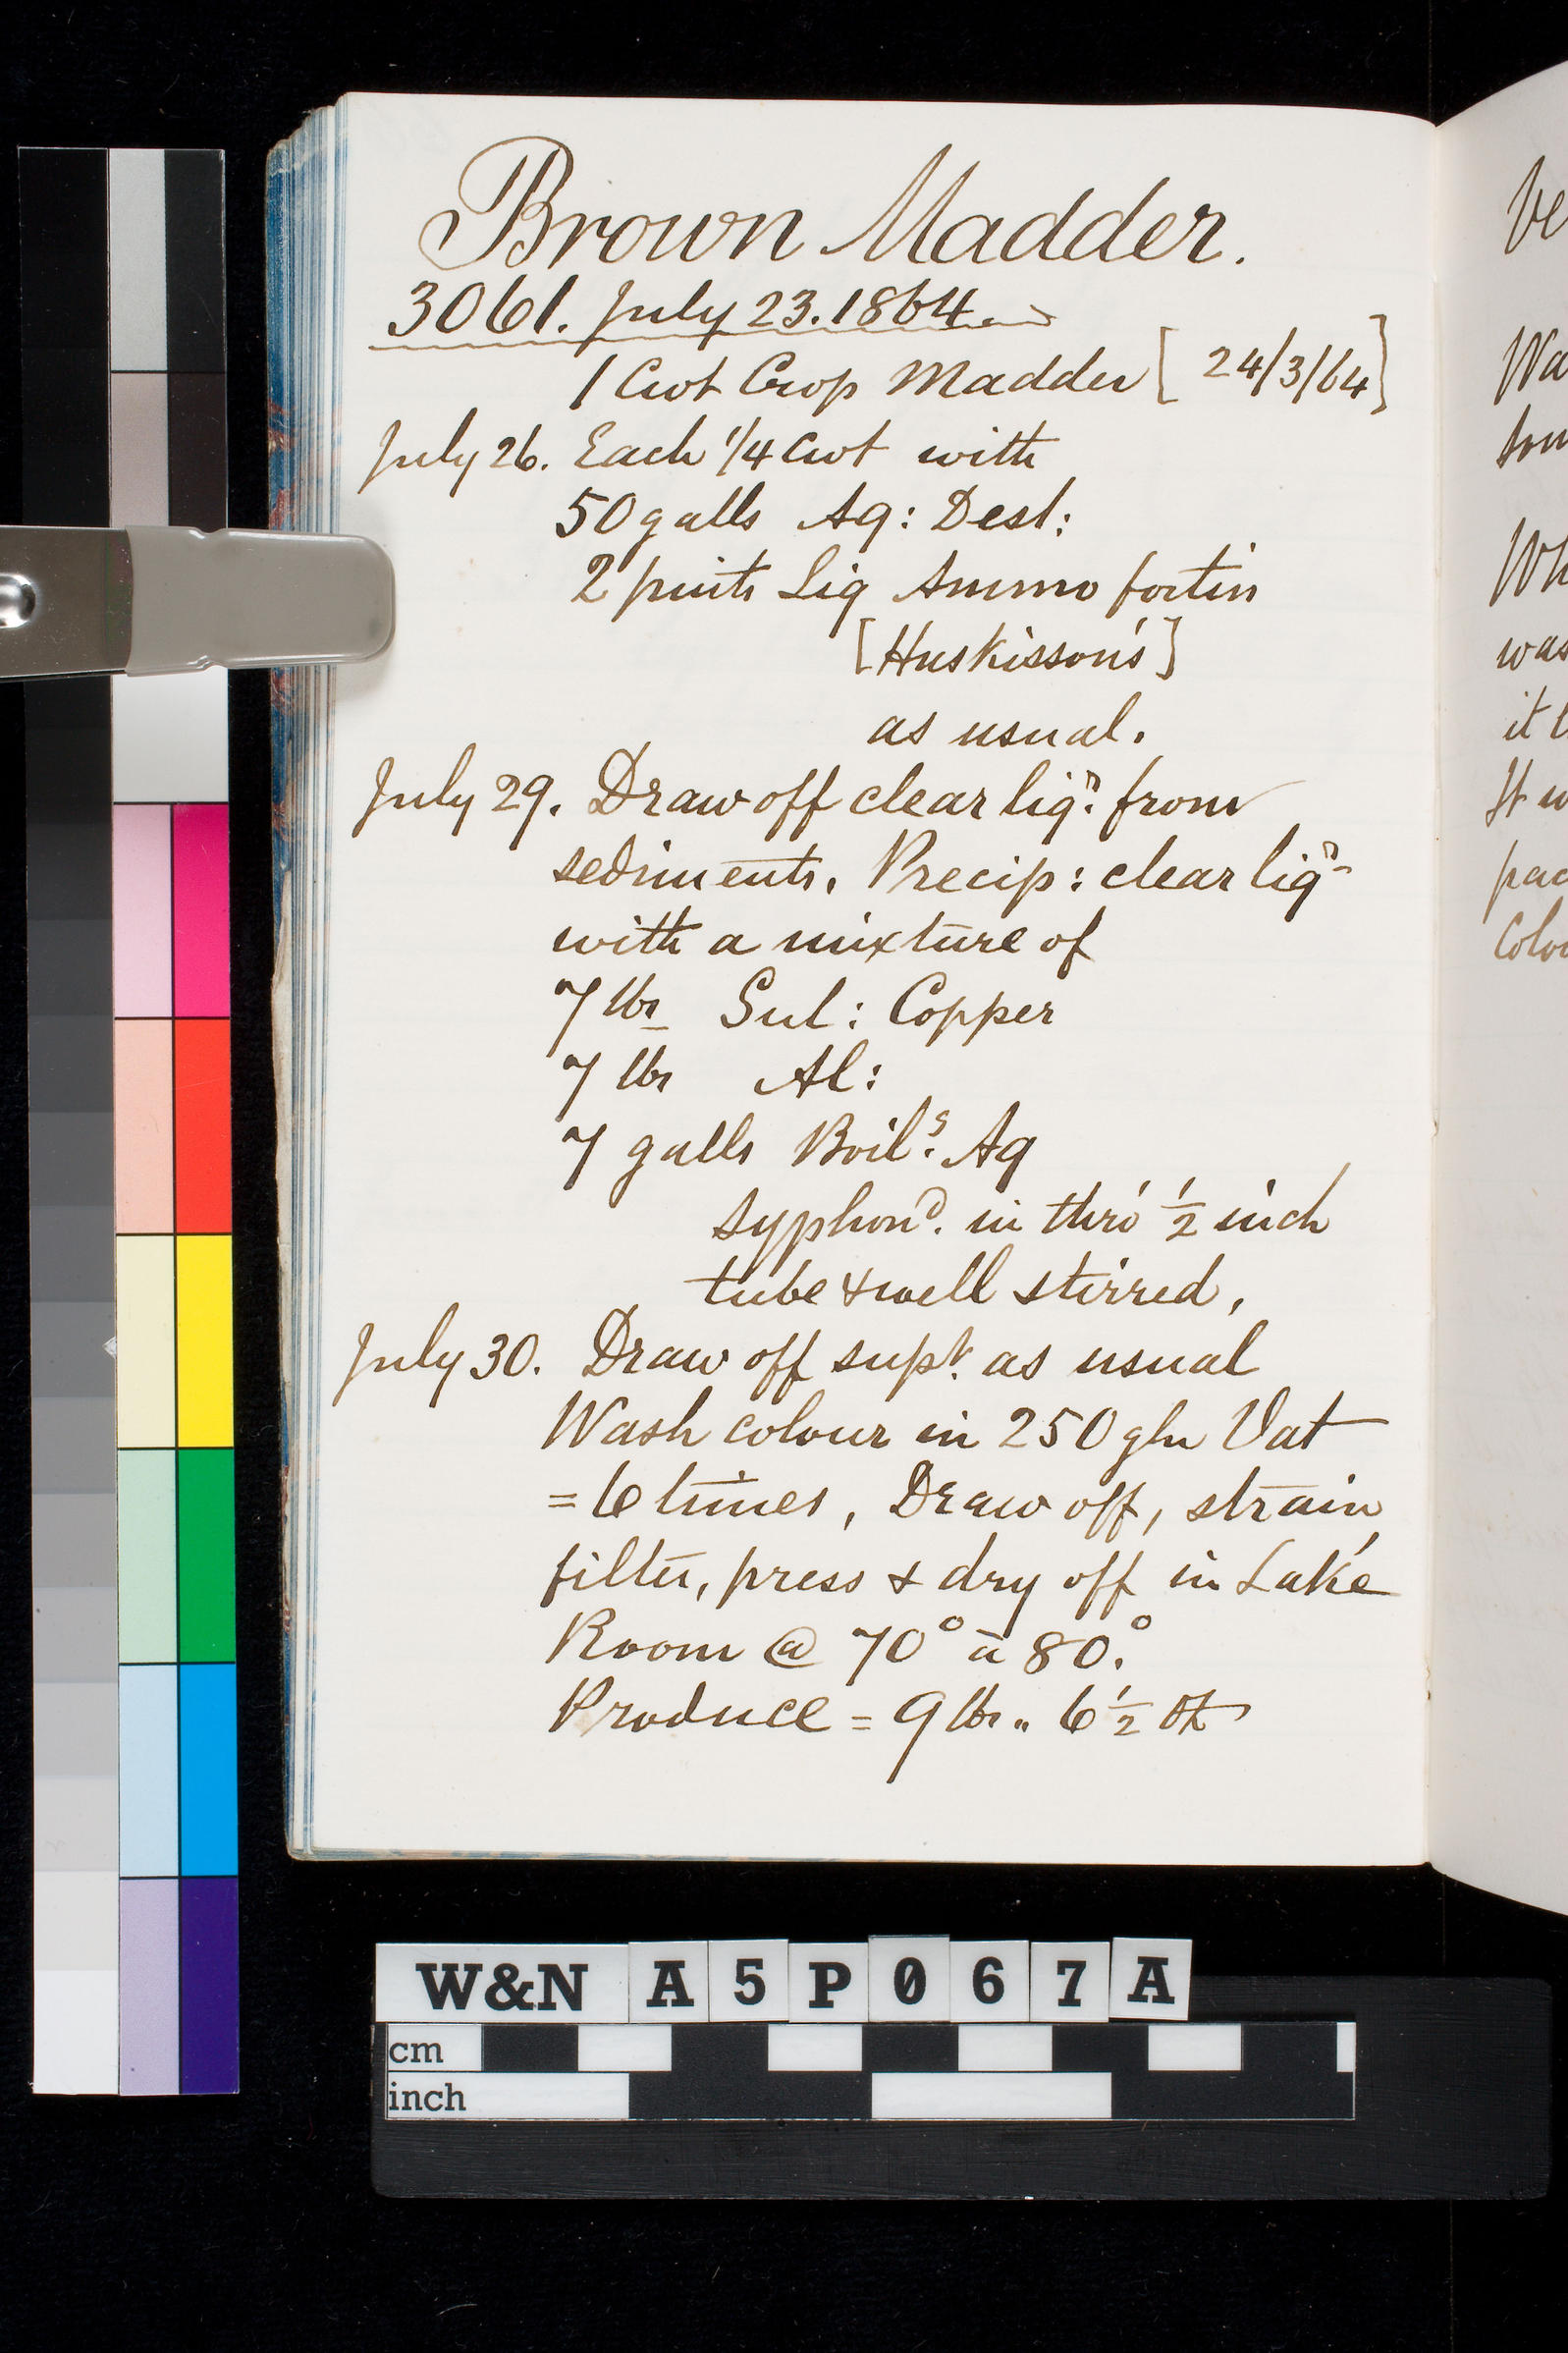 Brown Madder.
3061. July 23. 1864.
1 Cwt Crop Madder [24/3/64]
July 26. Each 1/4 Cwt with
50 galls Aq: Dest:
2 pints Liq Ammo fortis
[Huskisson's]
as usual.
July 29. Draw off clear liqr. from
sediments. Precip: clear liqr
with a mixture of
7 lbs Sul: Copper
7 lbs Al:
7 galls Boilg. Aq
syphond. in thro' 1/2 inch
tube & well stirred,
July 30. Draw off supt. as usual
Wash colour in 250 gln Vat
= 6 times, Draw off, strain,
filter, press & dry off in Lake
Room @ 70° à 80.°
Produce = 9 lbs .. 6 1/2 oz
W&N A5P067A
cm
inch
Wa
was